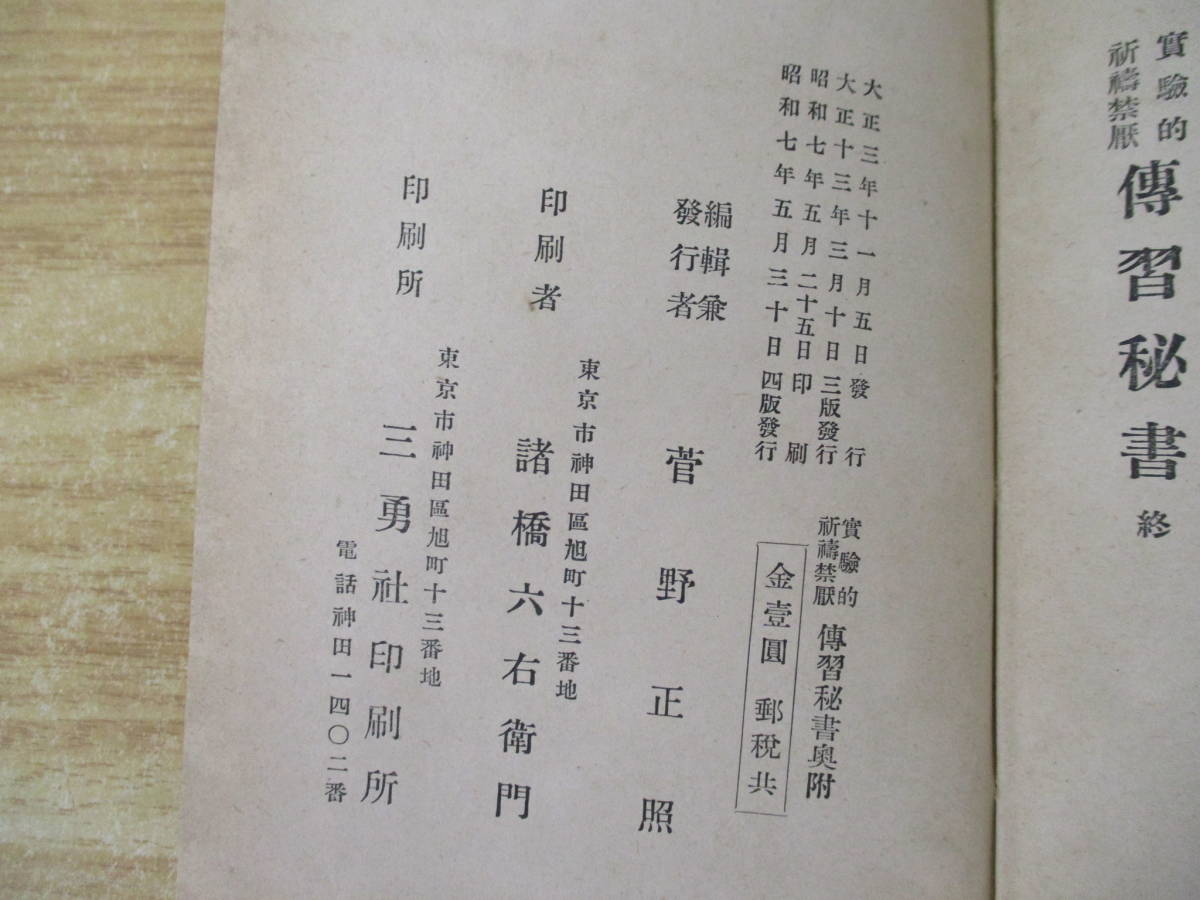 實驗的
祈禱禁厭
傳習秘書 終
大正三年十一月五日發行
大正十三年三月十日三版發行
昭和七年五月二十五日印刷
昭和七年五月三十日四版發行
實驗的
祈禱禁厭
傳習秘書奥附
金壹圓 郵税共
編輯兼
發行者
菅野正照
東京市神田區旭町十三番地
印刷者 諸橋六右衛門
東京市神田區旭町十三番地
印刷所 三勇社印刷所
電話神田一四〇二番